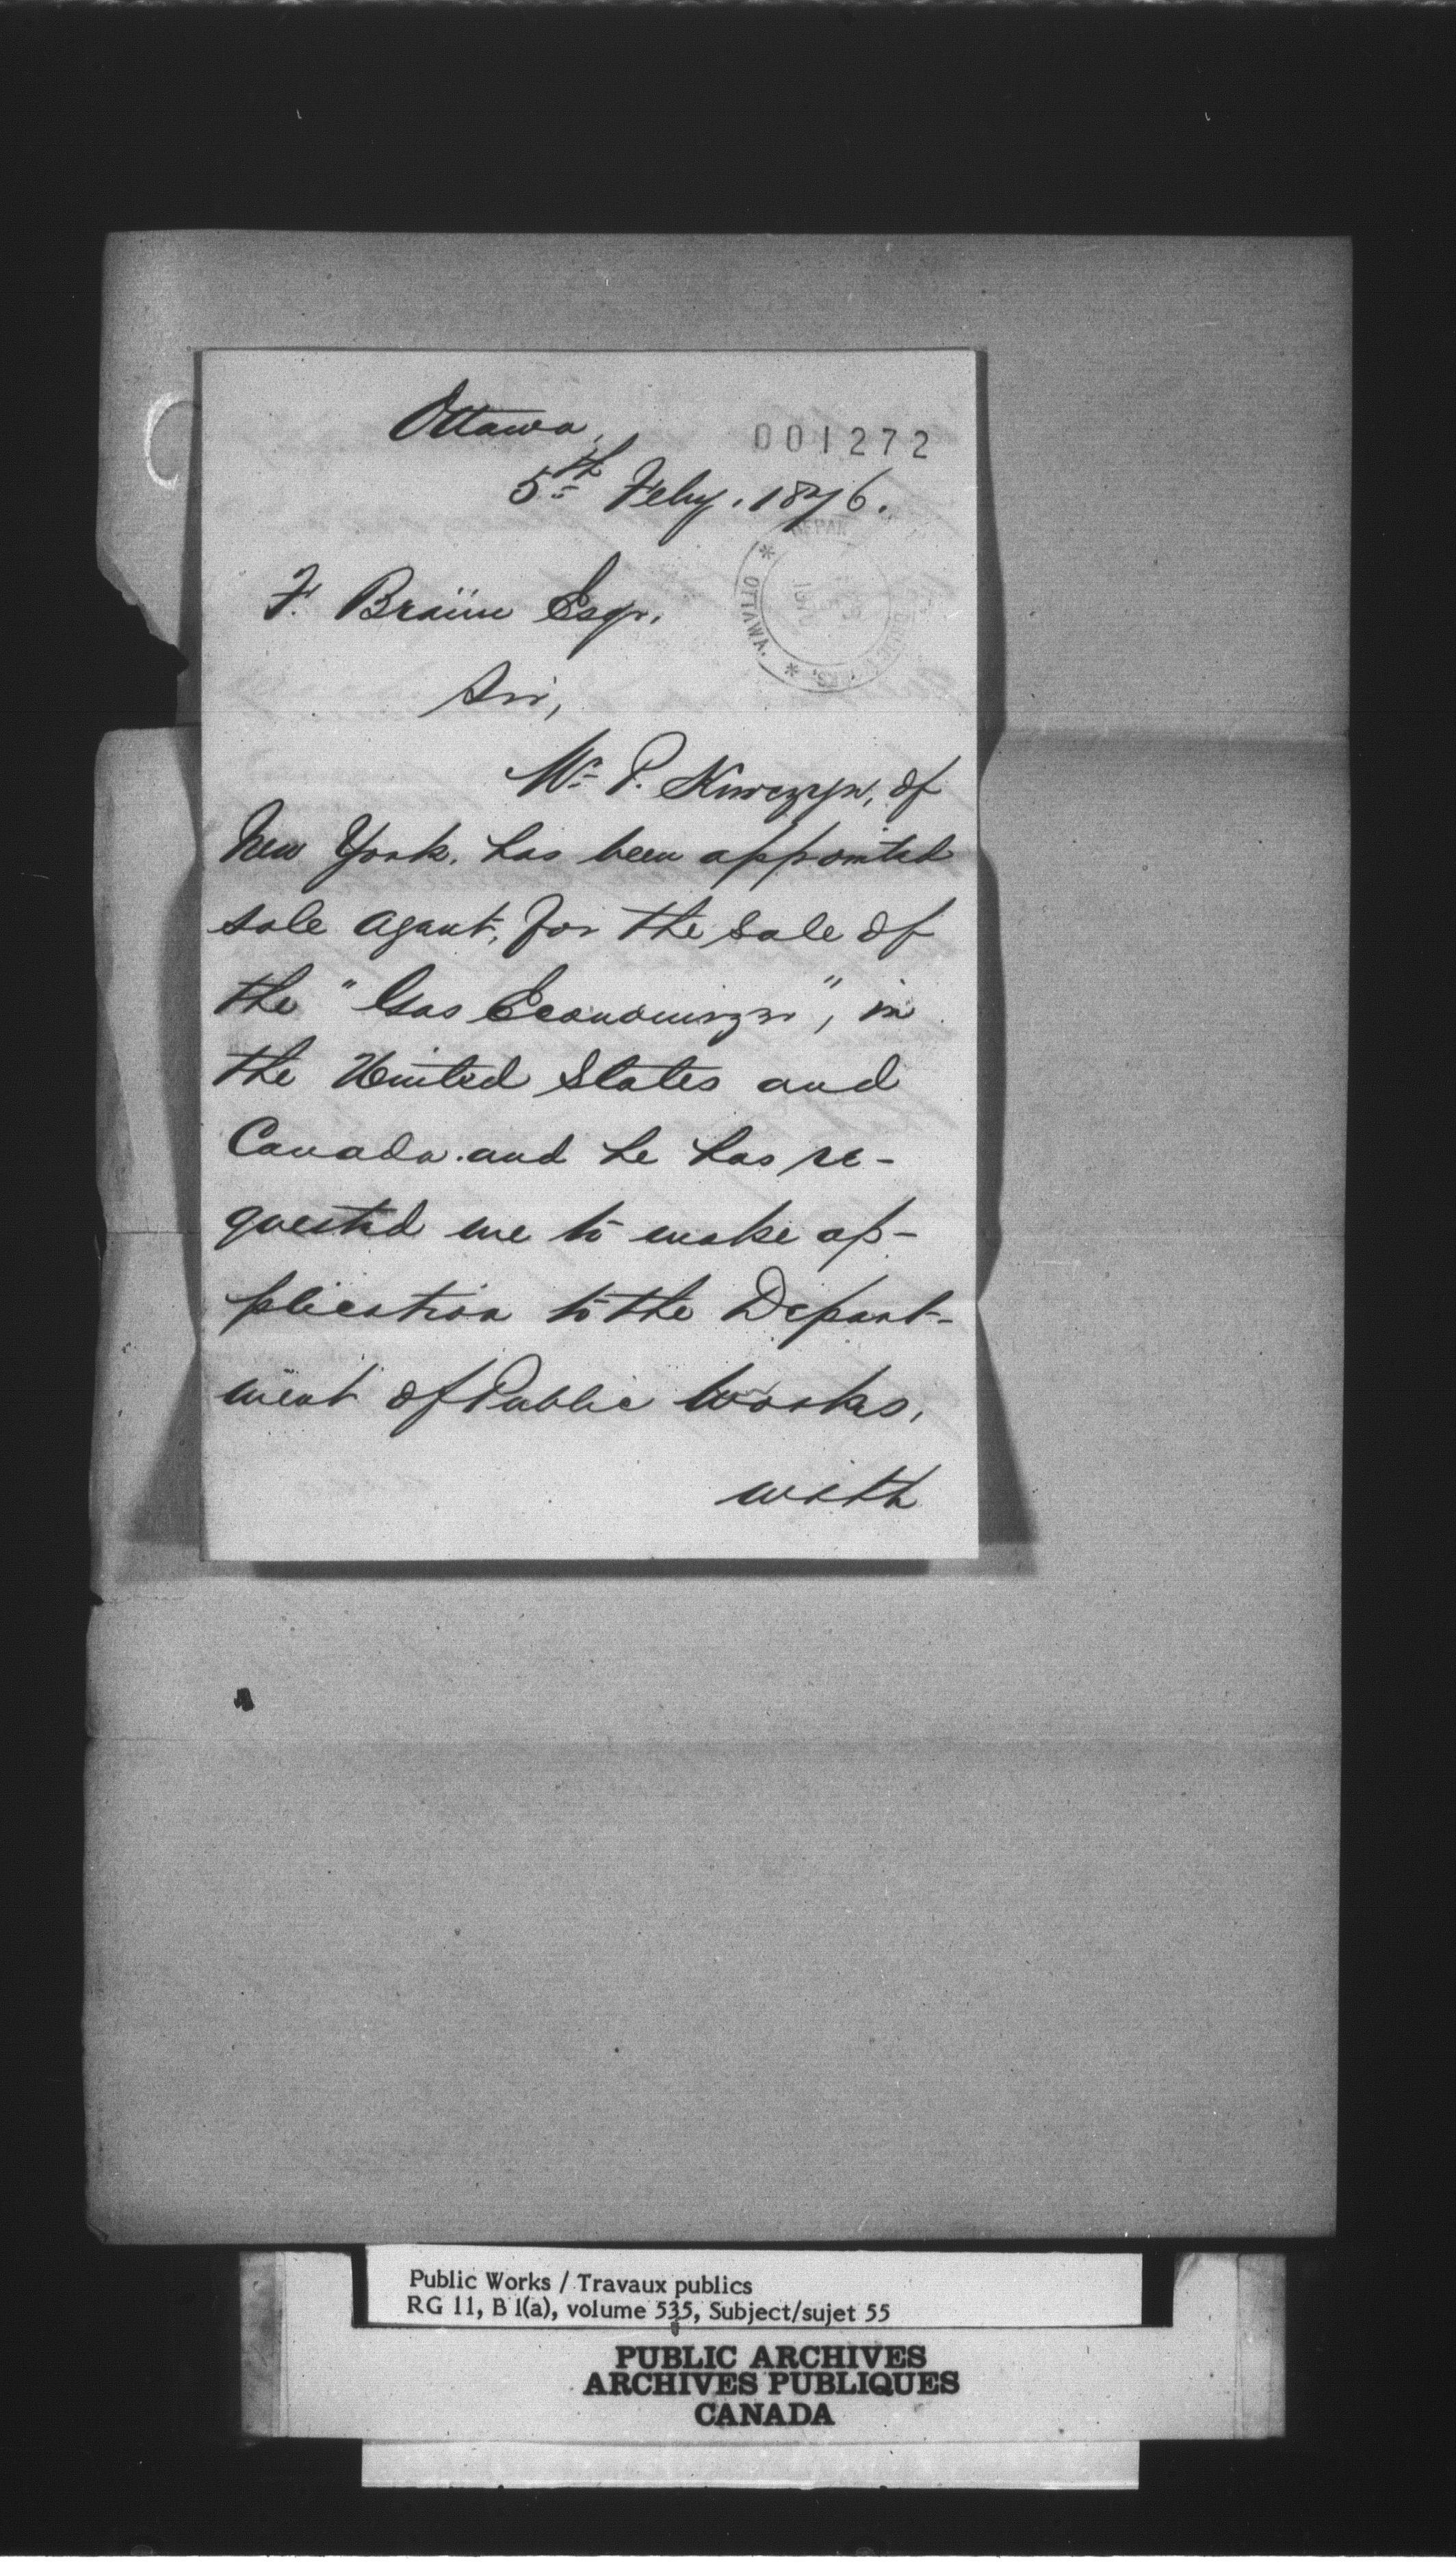 Ottawa,
001272
5th Feby. 1876.
F. Braün Esqr.
OTTAWA.
Sir,
Mr P. of
New York, has been appointed
sole agent, for the sale of
the "Gas Economizer", in
the United States and
Canada and he has re-
quested me to make ap-
plication to the Depart-
ment of Public Works,
with
Public Works / Travaux publics
RG 11, B 1(a), volume 535, Subject/sujet 55
PUBLIC ARCHIVES
ARCHIVES PUBLIQUES
CANADA